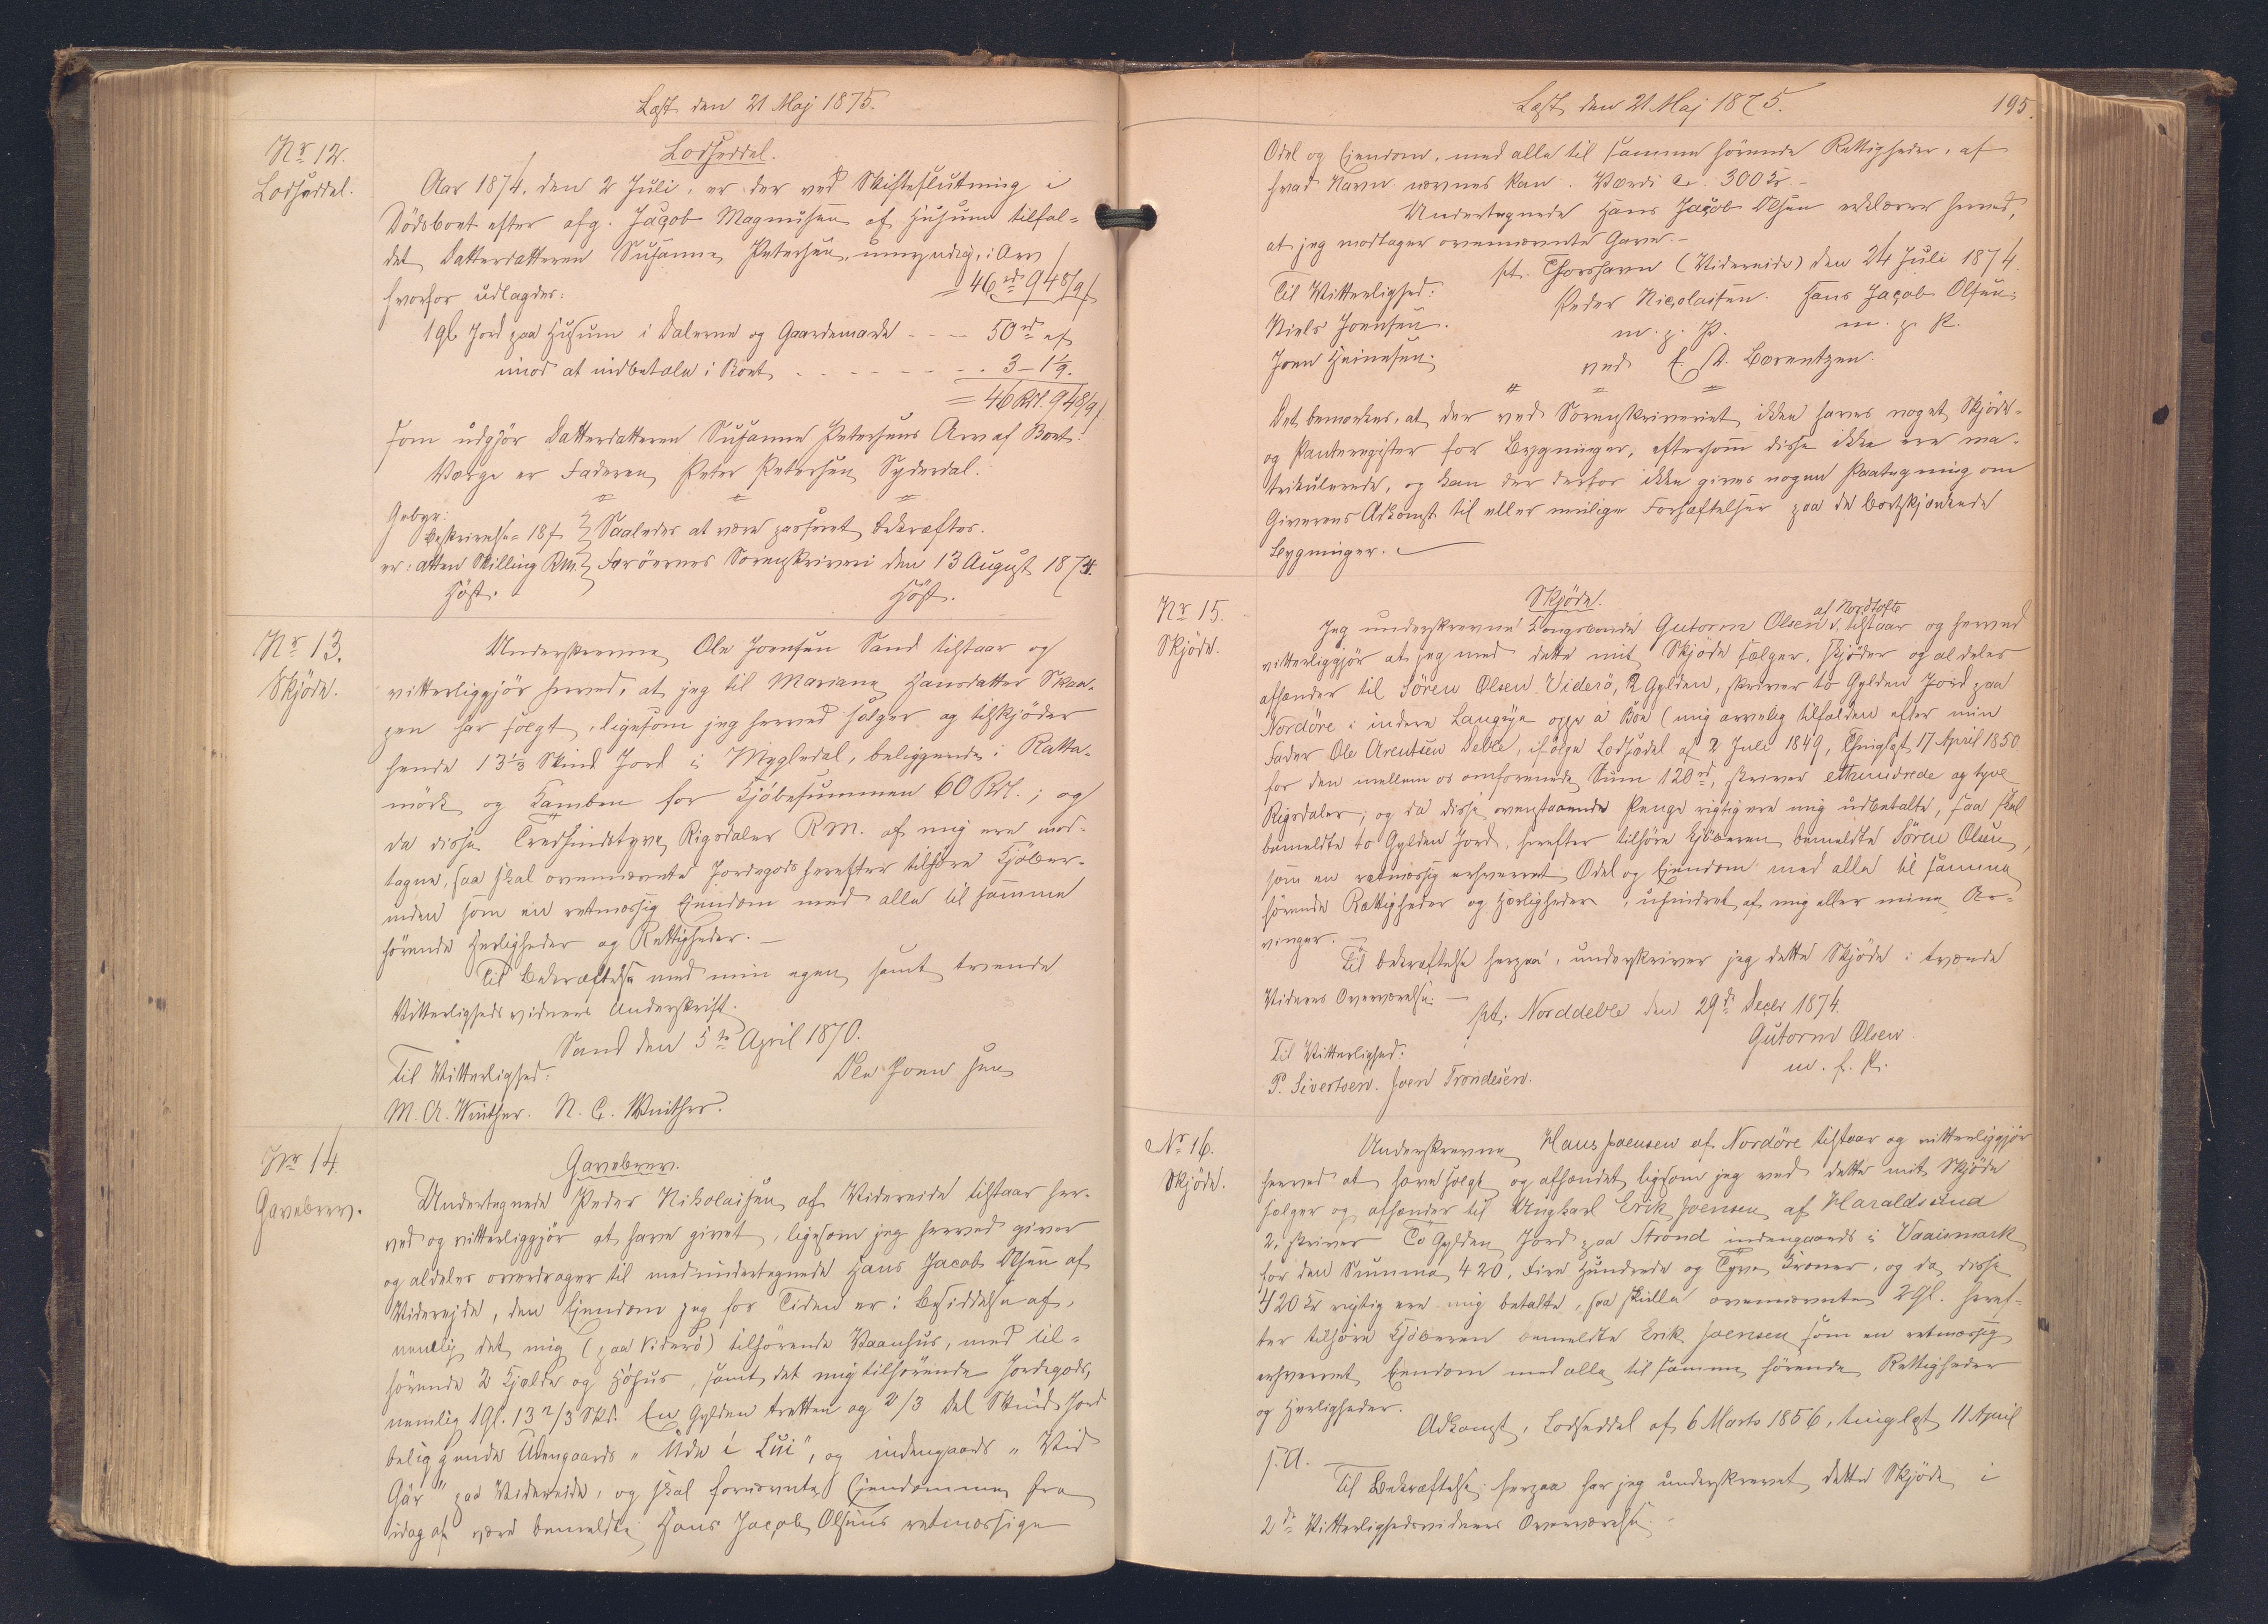 Læst den 21 Maj 1875.
Nr 12.
Lodseddel.
Lodseddel.
Aar 1874. den 2 Juli, er der ved Skifteslutning i
Dödsboet efter afg. Jacob Magnusen af Husum tilfal-
det Datterdatteren Susanne Petersen, umyndig, i Arv
= 46 rd 94 8/9 f
hvorfor udlagdes:
1 Gl. Jord paa Husum i Dalerne og Gaardemark - - - 50 rd " f
imod at indbetale i Boet - - - - - - - 3 - 1 1/9.
= 46 Rdl. 94 8/9 f
som udgjör Datterdatteren Susanne Petersens Arv af Boet.
Værge er Faderen, Peter Petersen, Syderdal.
Gebyr:
Beskrivelse = 18 f
er: atten Skilling RM.
Höst.
Saaledes at være passeret bekræftes.
Færöernes Sorenskriveri den 13 August 1874.
Höst.
Nr 13.
Skjöde.
Underskrevne Ole Joensen Sand tilstaar og
vitterliggjör herved, at jeg til Mariane Hansdatter Skaa-
pen har solgt, ligesom jeg herved sælger og tilskjöder
hende 13 1/3 Skind Jord i Mygledal, beliggende i Ratta-
mörk og Kamben for Kjöbesummen 60 Rdl.; og
da disse Tredsindstyve Rigsdaler RM. af mig ere mod-
tagne, saa skal ovennævnte Jordegods herefter tilhöre Kjöber-
inden som en retmæssig Eiendom med alle til samme
hörende Herligheder og Rettigheder. —
Til Bekræftelse med min egen samt tvende
Vitterligheds vidners Underskrift.
Sand den 5te April 1870.
Til Vitterlighed:
Ole Joen sen
M. A. Winther. N. C. Winther.
Nr 14.
Gavebrev.
Gavebrev.
Undertegnede Peder Nikolaisen af Videreide tilstaar her-
ved og vitterliggjör at have givet, ligesom jeg herved giver
og aldeles overdrager til medundertegnede Hans Jacob Olsen af
Videreide, den Eiendom jeg for Tiden er i Besiddelse af,
nemlig det mig (paa Viderö) tilhörende Vaanhus, med til-
hörende 2 Kjelder og Höhus, samt det mig tilhörende Jordegods,
nemlig 1 Gl. 13 2/3 Skd. En Gylden tretten og 2/3 Del Skinds Jord
beliggende Udengaards „Ude i Lui", og indengaards „Vid
Gar" paa Videreide, og skal fornævnte Eiendomme fra
idag af være bemeldte Hans Jacob Olsens retmæssige
Læst den 21 Maj 1875.
195.
Odel og Eiendom, med alle til samme hörende Rettigheder, af
hvad Navn nævnes kan. Værdi ca. 300 Kr. -
Undertegnede Hans Jacob Olsen erklærer herved,
at jeg modtager ovennævnte Gave. -
pt. Thorshavn (Videreide) den 24 Juli 1874.
Til Vitterlighed:
Peder Nicolaisen. Hans Jacob Olsen
Niels Joensen.
m. f. P. m. f. P.
Joen Heinesen.
ved E. A. Bærentzen.
Det bemærkes, at der ved Sorenskriveriet ikke haves noget Skjöde-
og Panteregister for Bygninger, eftersom disse ikke ere ma-
trikulerede, og kan der derfor ikke gives nogen Paategning om
Giverens Adkomst til eller mulige Forhæftelser paa de bortskjænkede
Bygninger.
Nr 15.
Skjöde.
Skjöde.
af Nordtofte
Jeg underskrevne Kongsbonde Gutorm Olsen v. tilstaar og herved
vitterliggjör at jeg med dette mit Skjöde sælger, skjöder og aldeles
afhænder til Sören Olsen Viderö, 2 Gylden, skriver to Gylden Jord paa
Nordöre i indere Langeye oppe á Böe (mig arvelig tilfalden efter min
Fader Ole Arentsen Deble, ifölge Lodseddel af 2 Juli 1849, Thinglyst 17 April 1850
for den mellem os omforenede Sum 120 rd, skriver et hundrede og tyve
Rigsdaler; og da disse ovenstaaende Penge rigtig ere mig udbetalte, saa skal
bemeldte to Gylden Jord, herefter tilhöre Kjöberen bemeldte Sören Olsen,
som en retmæssig erhvervet Odel og Eiendom med alle til samme
hörende Rettigheder og Herligheder, uhindret af mig eller mine Ar-
vinger. —
Til Bekræftelse herpaa, underskriver jeg dette Skjöde i tvende
Vidners Overværelse. —
pt. Norddeble den 29de Decbr 1874.
Gutorm Olsen
Til Vitterlighed:
m. f. P.
P. Sivertsen. Joen Trondesen.
Nr 16.
Skjöde.
Underskrevne Hans Joensen af Nordöre tilstaar og vitterliggjör
herved at have solgt og afhændet ligesom jeg ved dette mit Skjöde
sælger og afhænder til Ungkarl Erik Joensen af Haraldsund
2, skriver To Gylden Jord paa Strond indengaards i Vaaismark
for den Summa 420, Fire Hundrede og Tyve Kroner, og da disse
420 Kr rigtig ere mig betalte, saa skulle ovennævnte 2 Gl. heref-
ter tilhöre Kjöberen bemeldte Erik Joensen som en retmæssig
erhvervet Eiendom med alle til samme hörende Rettigheder
og Herligheder.
Adkomst, Lodseddel af 6 Marts 1856, tinglyst 11 April
s. A. —
Til Bekræftelse herpaa har jeg underskrevet dette Skjöde i
2de Vitterlighedsvidners Overværelse. -